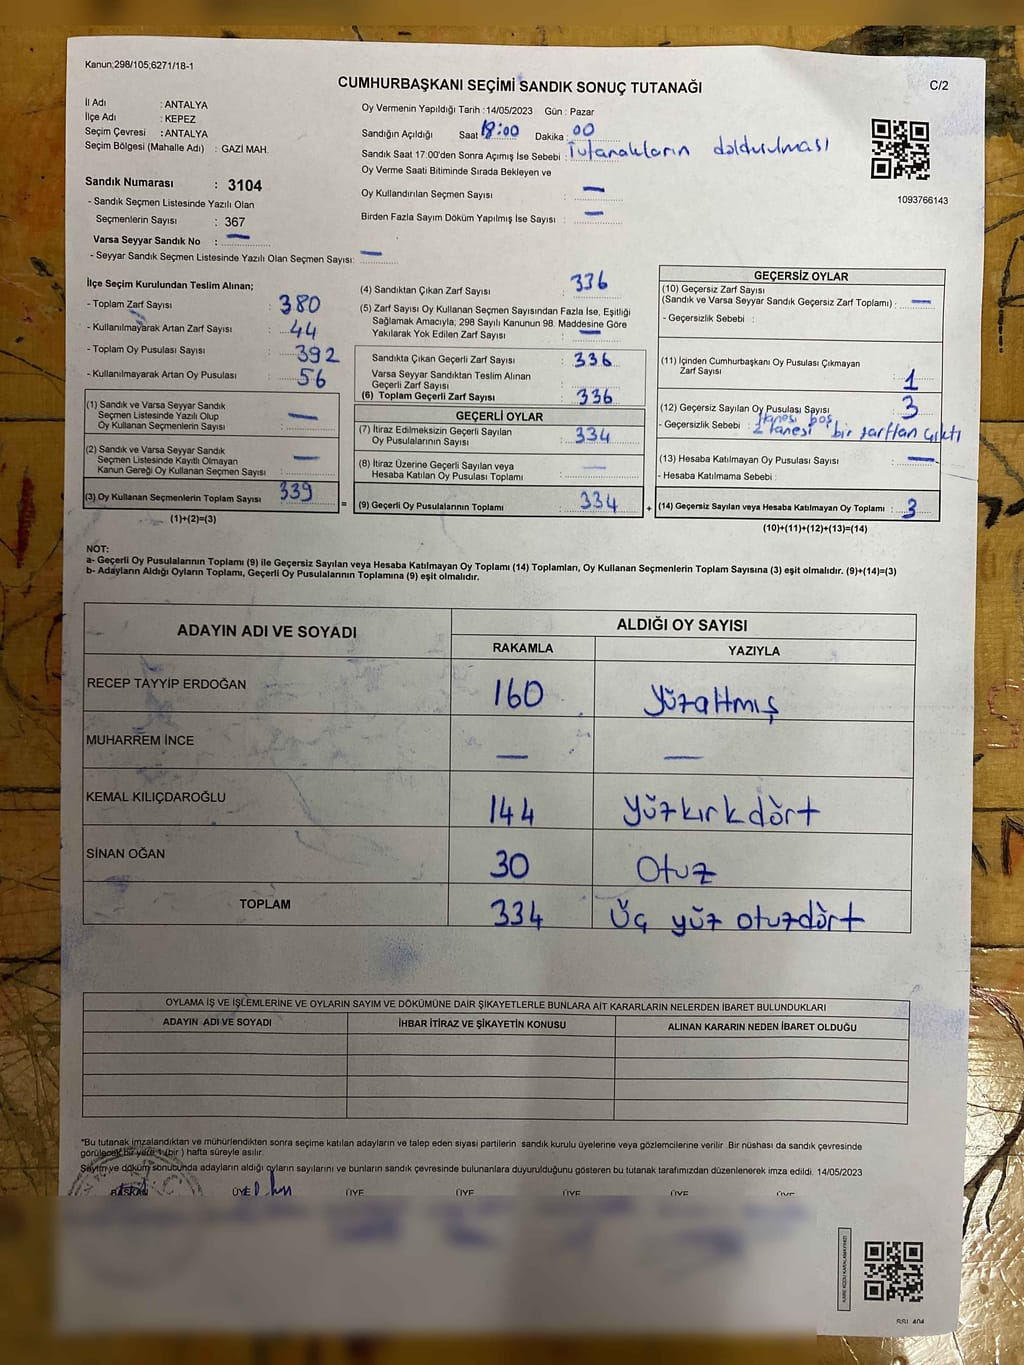 Kanun;298/105;6271/18-1
CUMHURBAŞKANI SEÇİMİ SANDIK SONUÇ TUTANAĞI
C/2
İl Adı : ANTALYA
İlçe Adı : KEPEZ
Seçim Çevresi : ANTALYA
Seçim Bölgesi (Mahalle Adı) : GAZİ MAH.
Sandık Numarası : 3104
- Sandık Seçmen Listesinde Yazılı Olan
Seçmenlerin Sayısı : 367
Varsa Seyyar Sandık No : —
- Seyyar Sandık Seçmen Listesinde Yazılı Olan Seçmen Sayısı: —
Oy Vermenin Yapıldığı Tarih :14/05/2023 Gün : Pazar
Sandığın Açıldığı Saat 18:00 Dakika : 00
Sandık Saat 17:00'den Sonra Açımış İse Sebebi : Tutanakların doldurulması
Oy Verme Saati Bitiminde Sırada Bekleyen ve
Oy Kullandırılan Seçmen Sayısı : —
Birden Fazla Sayım Döküm Yapılmış İse Sayısı : —
1093766143
İlçe Seçim Kurulundan Teslim Alınan;
- Toplam Zarf Sayısı : 380
- Kullanılmayarak Artan Zarf Sayısı : 44
- Toplam Oy Pusulası Sayısı : 392
- Kullanılmayarak Artan Oy Pusulası : 56
(1) Sandık ve Varsa Seyyar Sandık
Seçmen Listesinde Yazılı Olup
Oy Kullanan Seçmenlerin Sayısı : —
(2) Sandık ve Varsa Seyyar Sandık
Seçmen Listesinde Kayıtlı Olmayan
Kanun Gereği Oy Kullanan Seçmen Sayısı : —
(3) Oy Kullanan Seçmenlerin Toplam Sayısı : 339
(1)+(2)=(3)
(4) Sandıktan Çıkan Zarf Sayısı : 336
(5) Zarf Sayısı Oy Kullanan Seçmen Sayısından Fazla İse, Eşitliği
Sağlamak Amacıyla; 298 Sayılı Kanunun 98. Maddesine Göre
Yakılarak Yok Edilen Zarf Sayısı : —
Sandıkta Çıkan Geçerli Zarf Sayısı : 336
Varsa Seyyar Sandıktan Teslim Alınan
Geçerli Zarf Sayısı :
(6) Toplam Geçerli Zarf Sayısı : 336
GEÇERLİ OYLAR
(7) İtiraz Edilmeksizin Geçerli Sayılan
Oy Pusulalarının Sayısı : 334
(8) İtiraz Üzerine Geçerli Sayılan veya
Hesaba Katılan Oy Pusulası Toplamı : —
= (9) Geçerli Oy Pusulalarının Toplamı : 334
GEÇERSİZ OYLAR
(10) Geçersiz Zarf Sayısı
(Sandık ve Varsa Seyyar Sandık Geçersiz Zarf Toplamı) : —
- Geçersizlik Sebebi :
(11) İçinden Cumhurbaşkanı Oy Pusulası Çıkmayan
Zarf Sayısı : 1
(12) Geçersiz Sayılan Oy Pusulası Sayısı : 3
- Geçersizlik Sebebi : 1tanesi boş
2 tanesi bir zarftan çıktı
(13) Hesaba Katılmayan Oy Pusulası Sayısı : —
- Hesaba Katılmama Sebebi :
+ (14) Geçersiz Sayılan veya Hesaba Katılmayan Oy Toplamı : 3
(10)+(11)+(12)+(13)=(14)
NOT:
a- Geçerli Oy Pusulalarının Toplamı (9) ile Geçersiz Sayılan veya Hesaba Katılmayan Oy Toplamı (14) Toplamları, Oy Kullanan Seçmenlerin Toplam Sayısına (3) eşit olmalıdır. (9)+(14)=(3)
b- Adayların Aldığı Oyların Toplamı, Geçerli Oy Pusulalarının Toplamına (9) eşit olmalıdır.
ADAYIN ADI VE SOYADI
ALDIĞI OY SAYISI
RAKAMLA YAZIYLA
RECEP TAYYİP ERDOĞAN 160 yüzaltmış
MUHARREM İNCE — —
KEMAL KILIÇDAROĞLU 144 yüzkırkdört
SİNAN OĞAN 30 Otuz
TOPLAM 334 Üç yüz otuzdört
OYLAMA İŞ VE İŞLEMLERİNE VE OYLARIN SAYIM VE DÖKÜMÜNE DAİR ŞİKAYETLERLE BUNLARA AİT KARARLARIN NELERDEN İBARET BULUNDUKLARI
ADAYIN ADI VE SOYADI İHBAR İTİRAZ VE ŞİKAYETİN KONUSU ALINAN KARARIN NEDEN İBARET OLDUĞU
*Bu tutanak imzalandıktan ve mühürlendikten sonra seçime katılan adayların ve talep eden siyasi partilerin sandık kurulu üyelerine veya gözlemcilerine verilir. Bir nüshası da sandık çevresinde
görülecek bir yere 1 (bir ) hafta süreyle asılır.
Sayım ve döküm sonucunda adayların aldığı oyların sayılarını ve bunların sandık çevresinde bulunanlara duyurulduğunu gösteren bu tutanak tarafımızdan düzenlenerek imza edildi. 14/05/2023
BAŞKAN ÜYE ÜYE ÜYE ÜYE ÜYE ÜYE